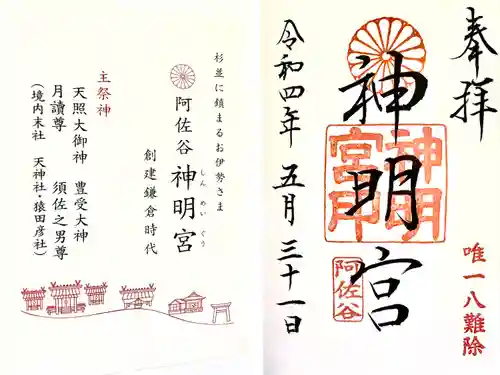 奉拝
唯一八難除
神明宮
神明
宮印
阿佐谷
令和四年 五月 三十一日
杉並に鎮まるお伊勢さま
阿佐谷 神明宮
しんめいぐう
創建鎌倉時代
主祭神
天照大御神 豊受大神
月讀尊 須佐之男尊
(境内末社 天神社・猿田彦社)